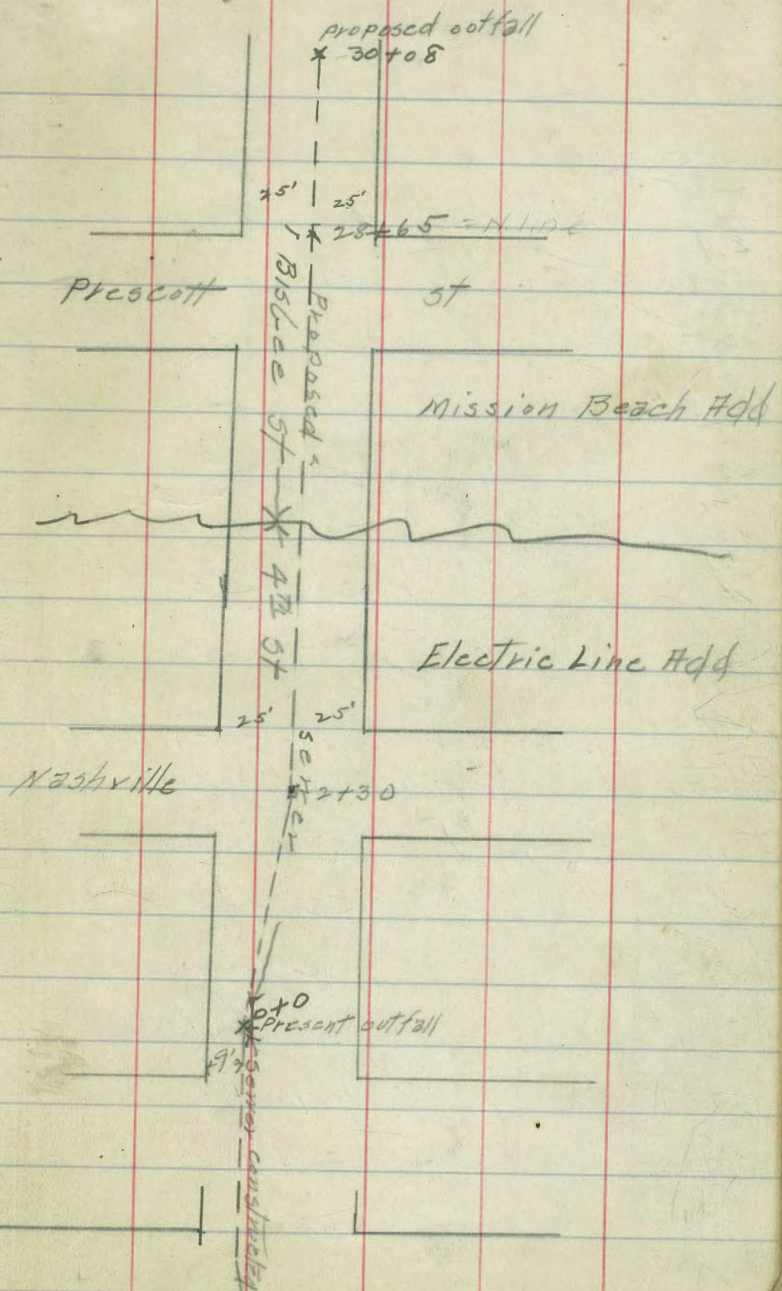 proposed outfall
30+08
25' 25'
28+65 = N. line
Prescott St
Bisbee St
Proposed
Mission Beach Add
4TH St
Electric Line Add
25' 25'
sewer
Nashville
2+30
0+0
Present outfall
9'
sewer constructed